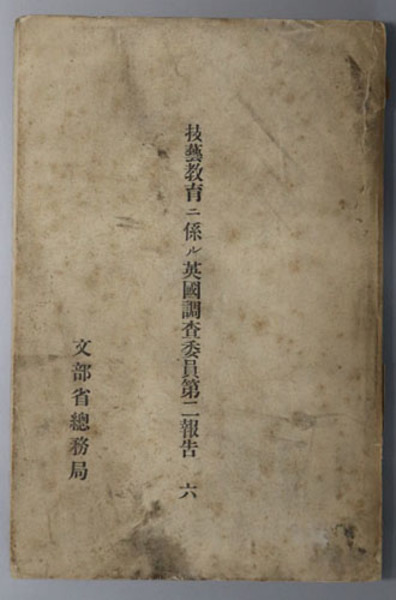 技藝教育ニ係ル英國調査委員第二報告 六
文部省總務局